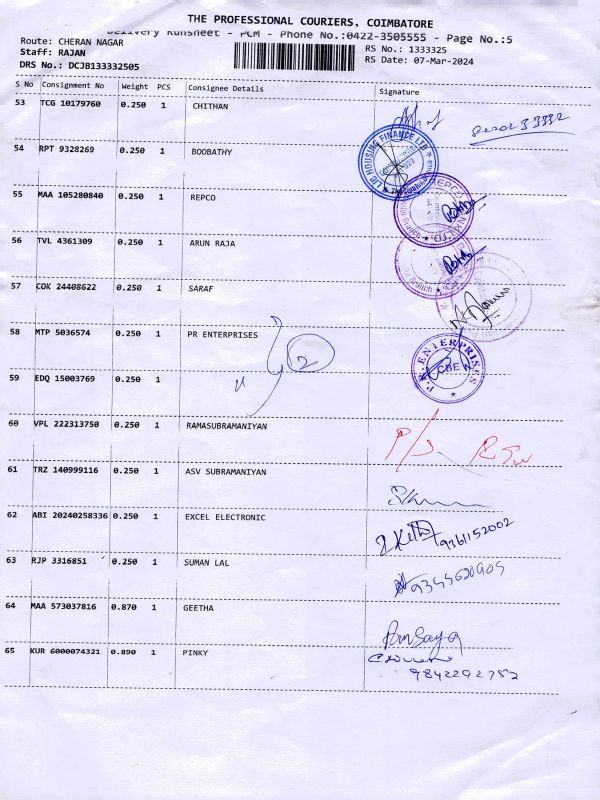 THE PROFESSIONAL COURIERS, COIMBATORE
Delivery Runsheet - PCM - Phone No.:0422-3505555 - Page No.:5
Route: CHERAN NAGAR
Staff: RAJAN
DRS No.: DCJB133332505
RS No.: 1333325
RS Date: 07-Mar-2024
S No Consignment No Weight PCS Consignee Details Signature
53 TCG 10179760 0.250 1 CHITHAN
54 RPT 9328269 0.250 1 BOOBATHY
LIC HOUSING FINANCE LTD
55 MAA 105280840 0.250 1 REPCO
REPCO
56 TVL 4361309 0.250 1 ARUN RAJA
57 COK 24408622 0.250 1 SARAF
58 MTP 5036574 0.250 1 PR ENTERPRISES
2
P.R. ENTERPRISES
CBE
59 EDQ 15003769 0.250 1
60 VPL 222313750 0.250 1 RAMASUBRAMANIYAN
61 TRZ 140999116 0.250 1 ASV SUBRAMANIYAN
62 ABI 20240258336 0.250 1 EXCEL ELECTRONIC
9361152002
63 RJP 3316851 0.250 1 SUMAN LAL
64 MAA 573037816 0.870 1 GEETHA
65 KUR 6000074321 0.890 1 PINKY
9842292752